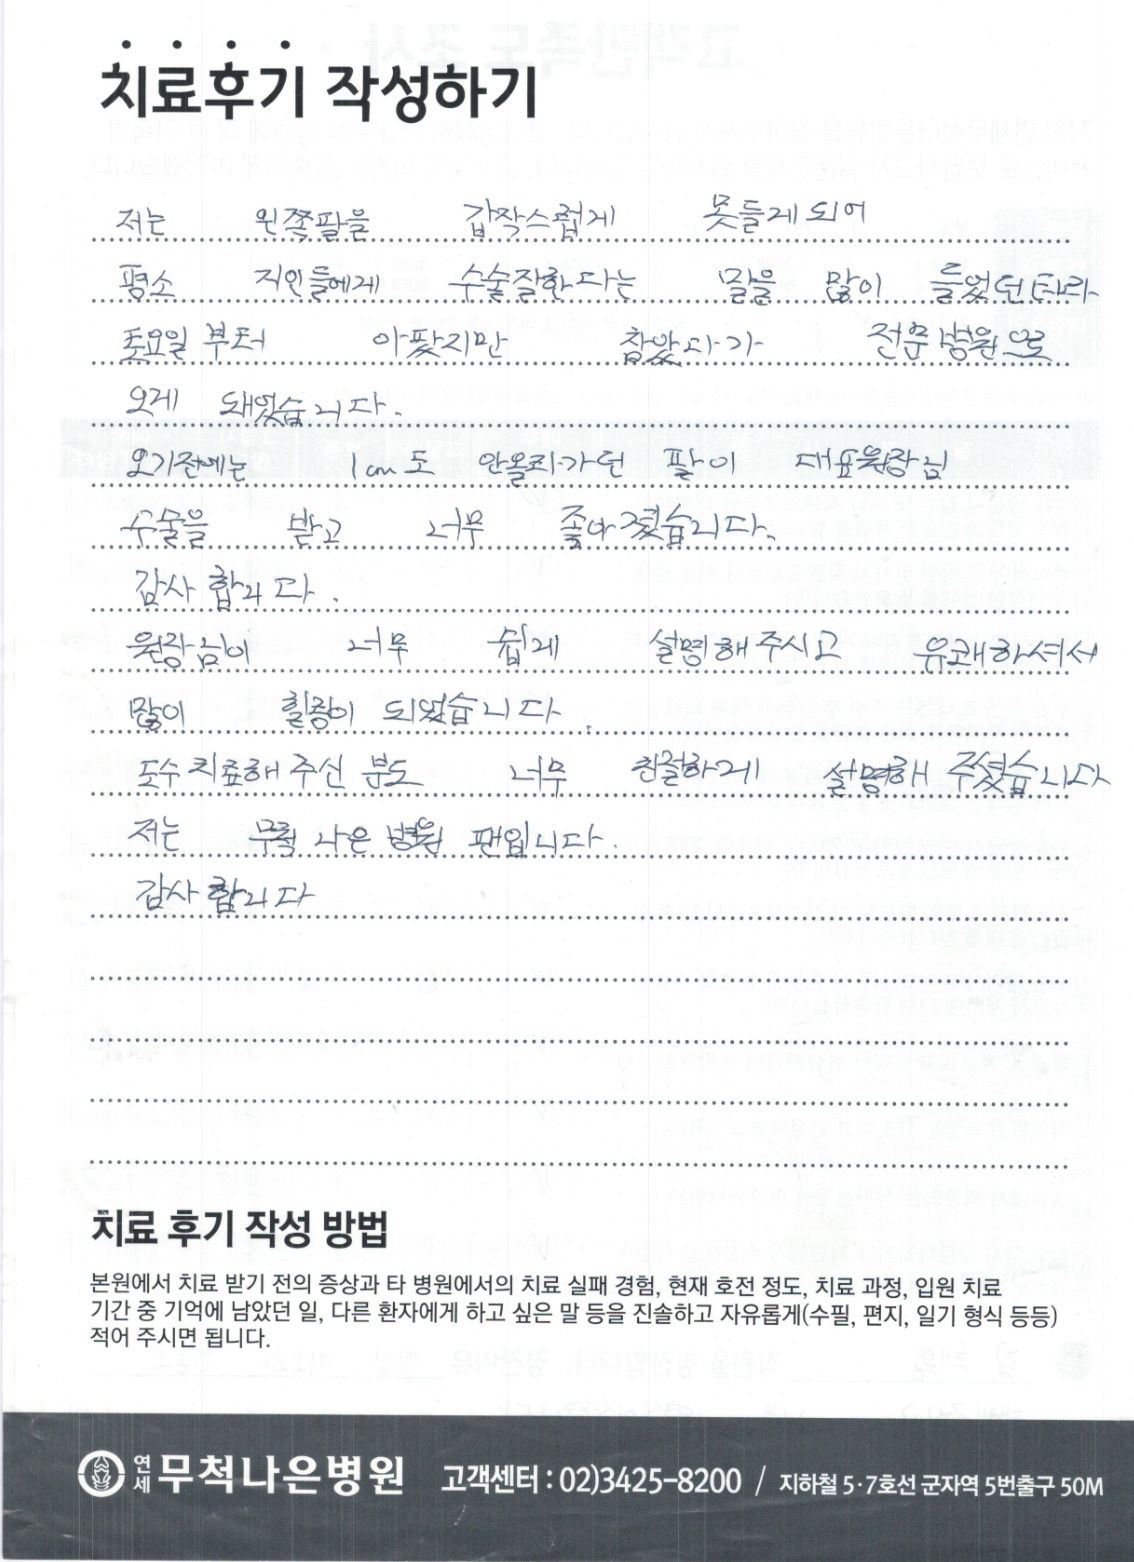 치료후기 작성하기
저는 왼쪽팔을 갑작스럽게 못들게 되어
평소 지인들에게 수술잘한다는 말을 많이 들었던터라
토요일 부터 아팠지만 참았다가 전문병원으로
오게 돼었습니다.
오기전에는 1cm도 안올라가던 팔이 대표원장님
수술을 받고 너무 좋아졌습니다.
감사 합니다.
원장님이 너무 쉽게 설명해 주시고 유쾌하셔서
많이 힐링이 되었습니다.
도수 치료해 주신 분도 너무 친절하게 설명해 주셨습니다
저는 무척 나은 병원 팬입니다.
감사 합니다
치료 후기 작성 방법
본원에서 치료 받기 전의 증상과 타 병원에서의 치료 실패 경험, 현재 호전 정도, 치료 과정, 입원 치료
기간 중 기억에 남았던 일, 다른 환자에게 하고 싶은 말 등을 진솔하고 자유롭게(수필, 편지, 일기 형식 등등)
적어 주시면 됩니다.
연세 무척나은병원 고객센터 : 02)3425-8200 / 지하철 5·7호선 군자역 5번출구 50M